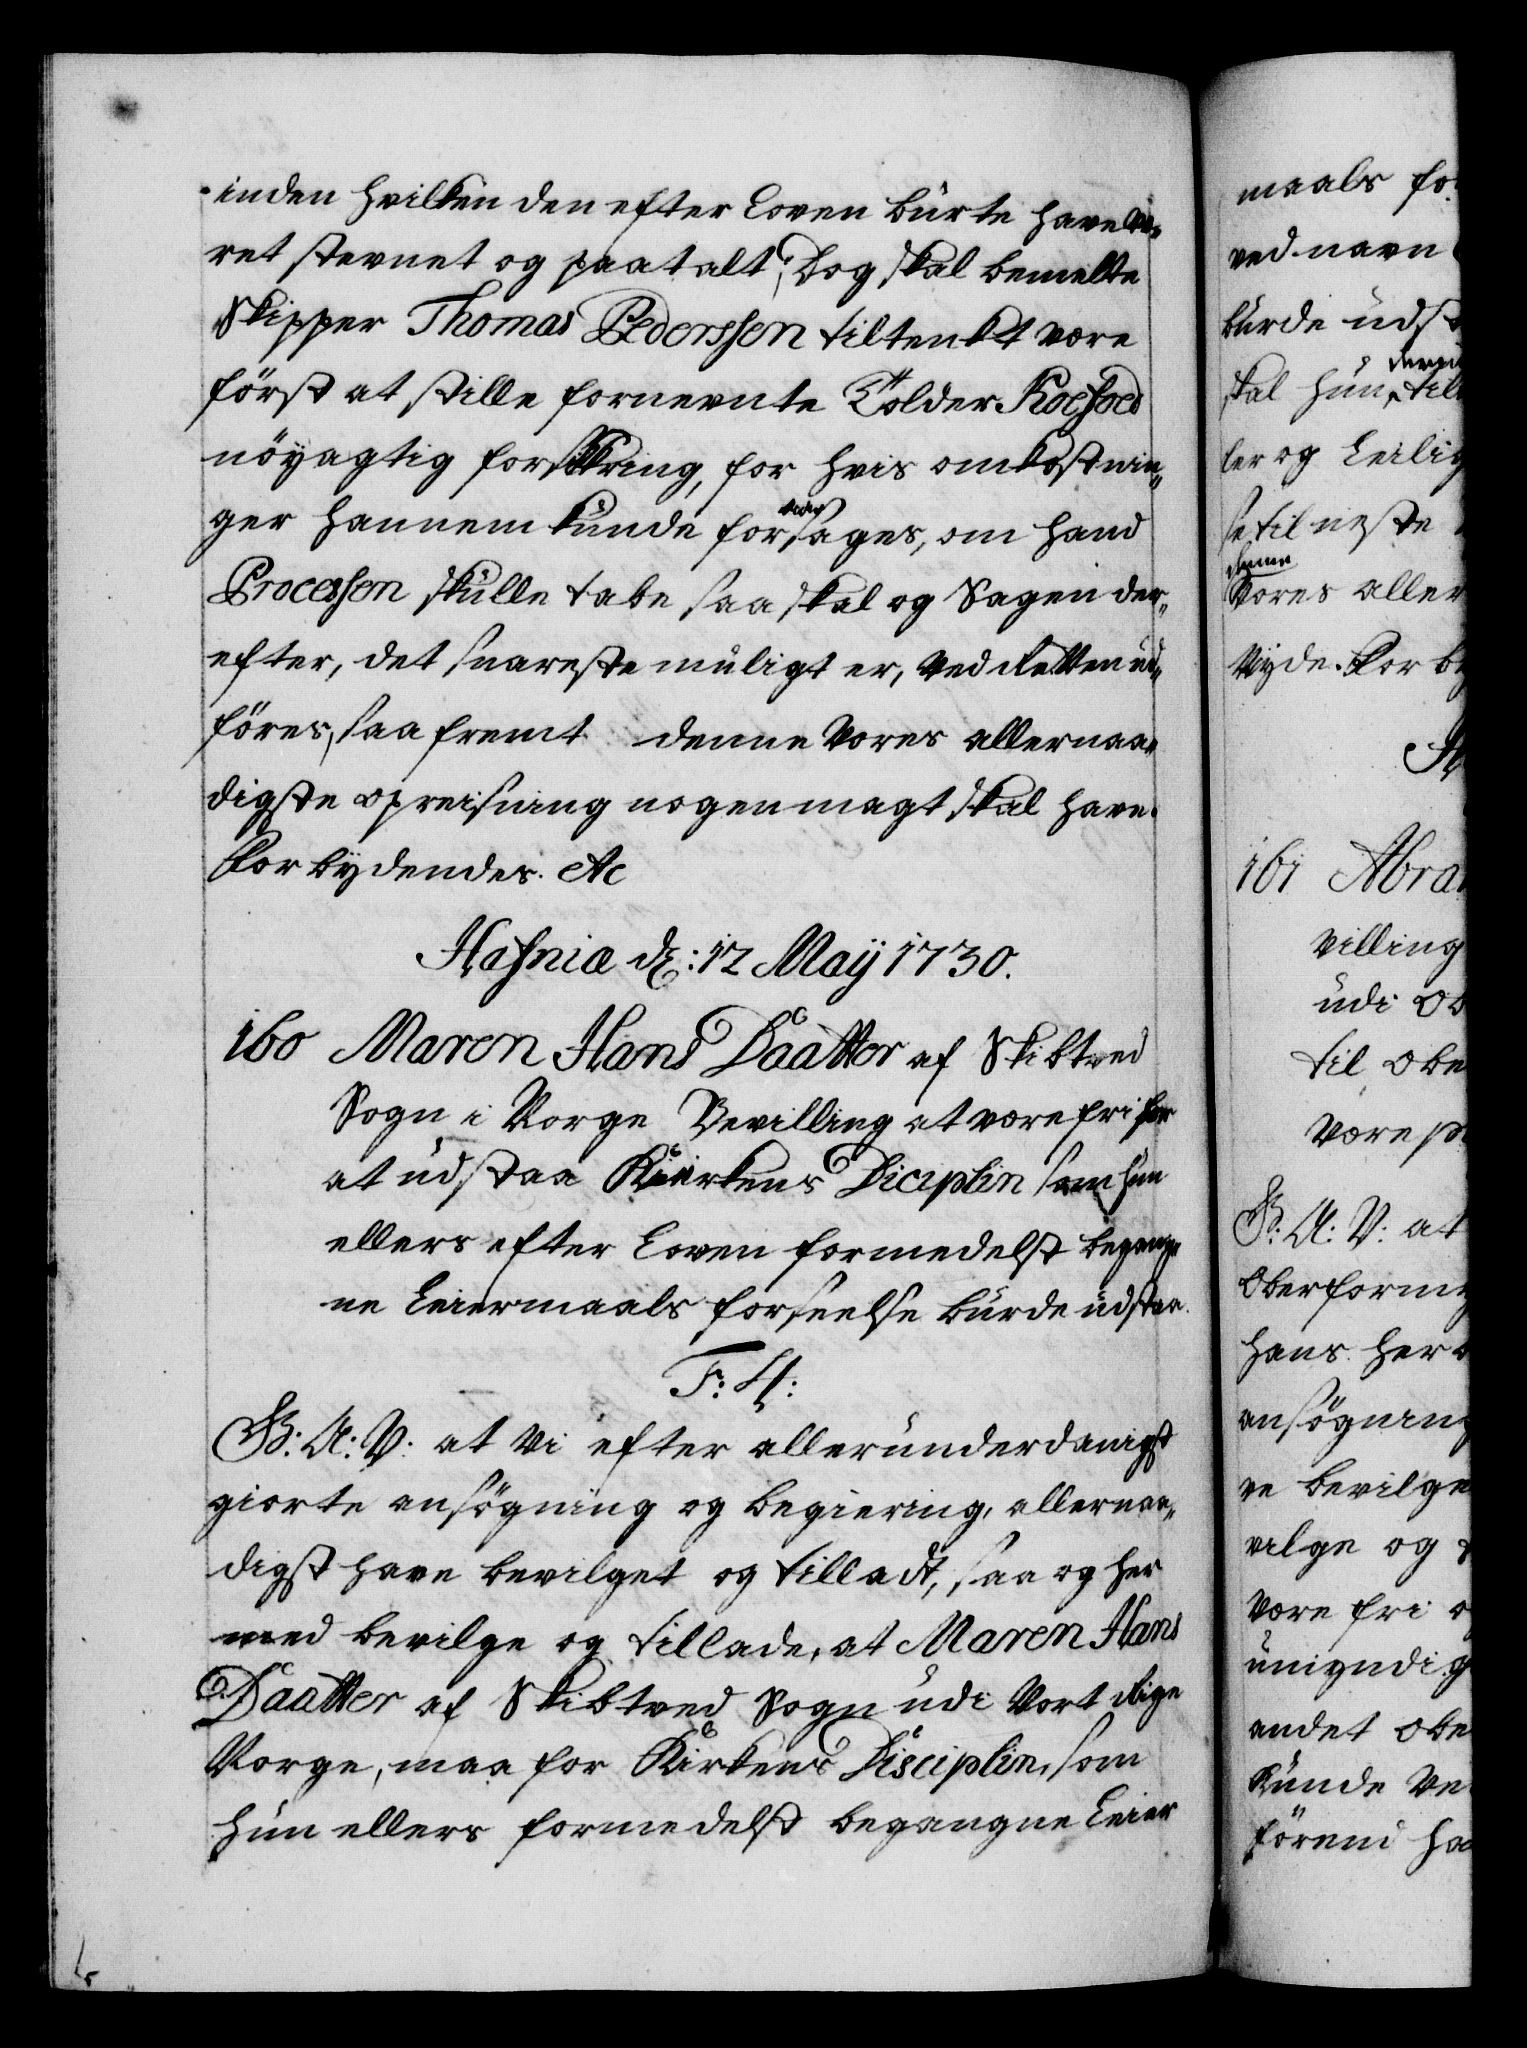 inden hvilken den efter Loven burte have væ,,
ret stevnet og paatalt; Dog skal bemelte
Skipper Thomas Pederssen tiltenkt være
först at stille fornevnte Tolder Koefoed
nöyagtig forsikring, for hvis omkostnin,,
ger hannem kunde foraarsages, om hand
Processen skulle tabe saa skal og Sagen der,,
efter, det snareste muligt er, ved Retten ud,,
föres, saa fremt denne Vores allernaa,,
digste opreisning nogen magt skal have.
Forbydendes. Etc
Hafniæ d: 12 Maÿ 1730.
160 Maren Hans Daatter af Skibtved
Sogn i Norge Bevilling at være fri for
at udstaa Kirkens Diciplin som hun
ellers efter Loven formedelst begang
ne Leiermaals forseelse burde udstaa.
F: 4:
G: A: V: at Vi efter allerunderdanigst
giorte ansögning og begiering, allernaa,,
digst have bevilget og tilladt, saa og her
med bevilge og tillade, at Maren Hans
Daatter af Skibtved Sogn udi Vort Rige
Norge, maa for Kirkens Disciplin, som
hun ellers formedelst begangne Leier
maals for
ved navn
burde udst
skal hun till
ler og Leilig
se til neste
denne
Vores aller
byde. For by
161 Abra
villing
udi Ob
til Obe
være p
G: A: V: at
Oberform
hans her
ansögning
re bevilge
vilge og
være fri o
umyndig
andet obe
kunde ve
förend ha